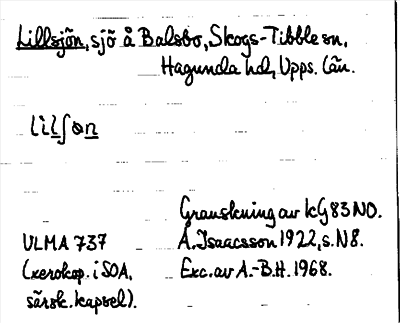 Lillsjön, sjö å Balsbo, Skogs-Tibble sn,
Hagunda hd, Upps. län.
lilʃøn
Granskning av kG 83 NO.
ULMA 737 A. Isacsson 1922, s. N8.
(xerokop. i SOA, Exc. av A.-B.H. 1968.
särsk. kapsel).